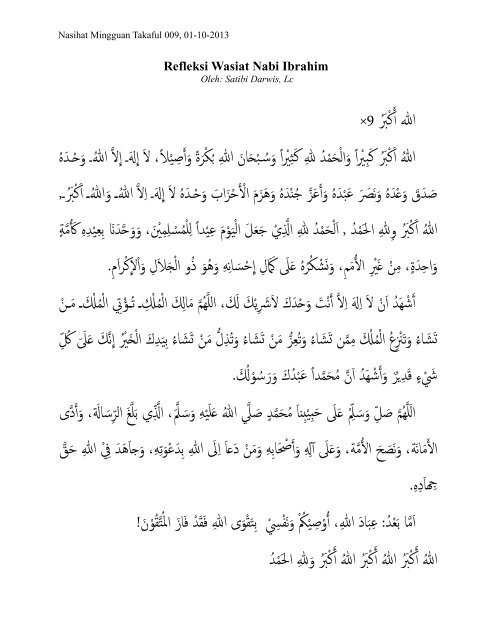 Nasihat Mingguan Takaful 009, 01-10-2013
Refleksi Wasiat Nabi Ibrahim
Oleh: Satibi Darwis, Lc
الله أَكْبَرُ 9×
اللهُ أَكْبَرُ كَبِيْرًا وَالْحَمْدُ للهِ كَثِيْراً وَسُبْحَانَ اللهِ بُكْرَةً وَأَصِيْلاً، لاَ إِلهَ إِلاَّ اللهُ وَحْدَهُ
صَدَقَ وَعْدَهُ وَنَصَرَ عَبْدَهُ وَأَعَزَّ جُنْدَهُ وَهَزَمَ الْأَحْزَابَ وَحْدَهُ لاَ إِلهَ اِلاَّ اللهُ وَاللهُ أَكْبَرُ,
اللهُ أَكْبَرُ وِللهِ الحَمْدُ , اَلْحَمْدُ للهِ الَّذِيْ جَعَلَ الْيَوْمَ عِيْداً لِلْمُسْلِمِيْنَ، وَوَحَّدَنَا بِعِيْدِهِ كَأُمَّةٍ
وَاحِدَةٍ، مِنْ غَيْرِ الأُمَمِ، وَنَشْكُرُهُ عَلَى كَمَالِ إِحْسَانِهِ وَهُوَ ذُو الْجَلاَلِ وَاْلإِكْرَامِ.
أَشْهَدُ اَنْ لاَ اِلهَ اِلاَّ أَنْتَ وَحْدَكَ لاَشَرِيْكَ لَكَ، اللَّهُمَّ مَالِكَ الْمُلْكِ تُؤْتِي الْمُلْكَ مَنْ
تَشَاءُ وَتَنْزِعُ الْمُلْكَ مِمَّن تَشَاءُ وَتُعِزُّ مَنْ تَشَاءُ وَتُذِلُّ مَنْ تَشَاءُ بِيَدِكَ الْخَيْرُ إِنَّكَ عَلَىَ كُلِّ
شَيْءٍ قَدِيرٌ وَأَشْهَدُ اَنَّ مُحَمَّداً عَبْدُكَ وَرَسُوْلُكَ.
اَللَّهُمَّ صَلِّ وَسَلِّمْ عَلَى حَبِيْبِناَ مُحَمَّدٍ صَلَّي اللهُ عَلَيْهِ وَسَلَّمَ، الَّذِي بَلَّغَ الرِّسَالَةَ، وَأَدَّى
الأَمَانَةَ، وَنَصَحَ الأُمَّةَ، وَعَلَى آلِهِ وَأَصْحَابِهِ وَمَنْ دَعاَ اِلَى اللهِ بِدَعْوَتِهِ، وَجاَهَدَ فِيْ اللهِ حَقَّ
جِهاَدِهِ.
اَمَّا بَعْدُ: عِبَادَ اللهِ، أُوْصِيْكُمْ وَنَفْسِيْ بِتَقْوَى اللهِ فَقَدْ فَازَ الْمُتَّقُوْنَ!
اللهُ أَكْبَرُ اللهُ أَكْبَرُ اللهُ أَكْبَرُ وَللهِ الحَمْدُ